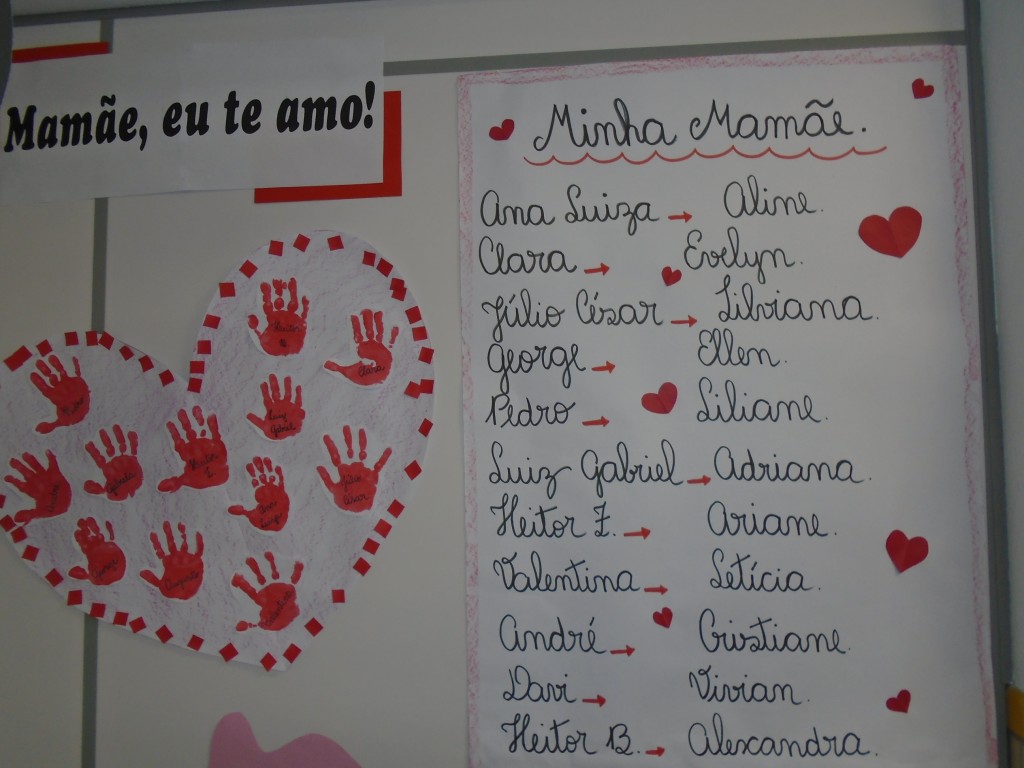 Mamãe, eu te amo!
Minha Mamãe.
Ana Luiza → Aline.
Clara → Evelyn.
Júlio César → Silviana.
George → Ellen.
Pedro → Liliane.
Luiz Gabriel → Adriana.
Heitor Z. → Ariane.
Valentina → Letícia.
André → Cristiane.
Davi → Vivian.
Heitor B. → Alexandra.
Heitor
Clara
Luiz
Gabriel
Júlio
César